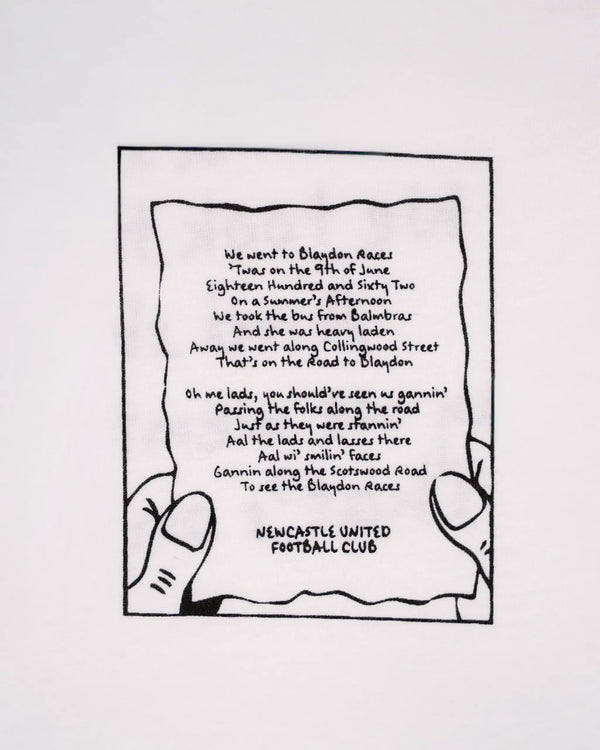 We went to Blaydon Races
'Twas on the 9th of June
Eighteen Hundred and Sixty Two
On a Summer's Afternoon
We took the bus from Balmbras
And she was heavy laden
Away we went along Collingwood Street
That's on the Road to Blaydon
Oh me lads, you should've seen us gannin'
Passing the folks along the road
Just as they were stannin'
Aal the lads and lasses there
Aal wi' smilin' faces
Gannin along the Scotswood Road
To see the Blaydon Races
NEWCASTLE UNITED
FOOTBALL CLUB